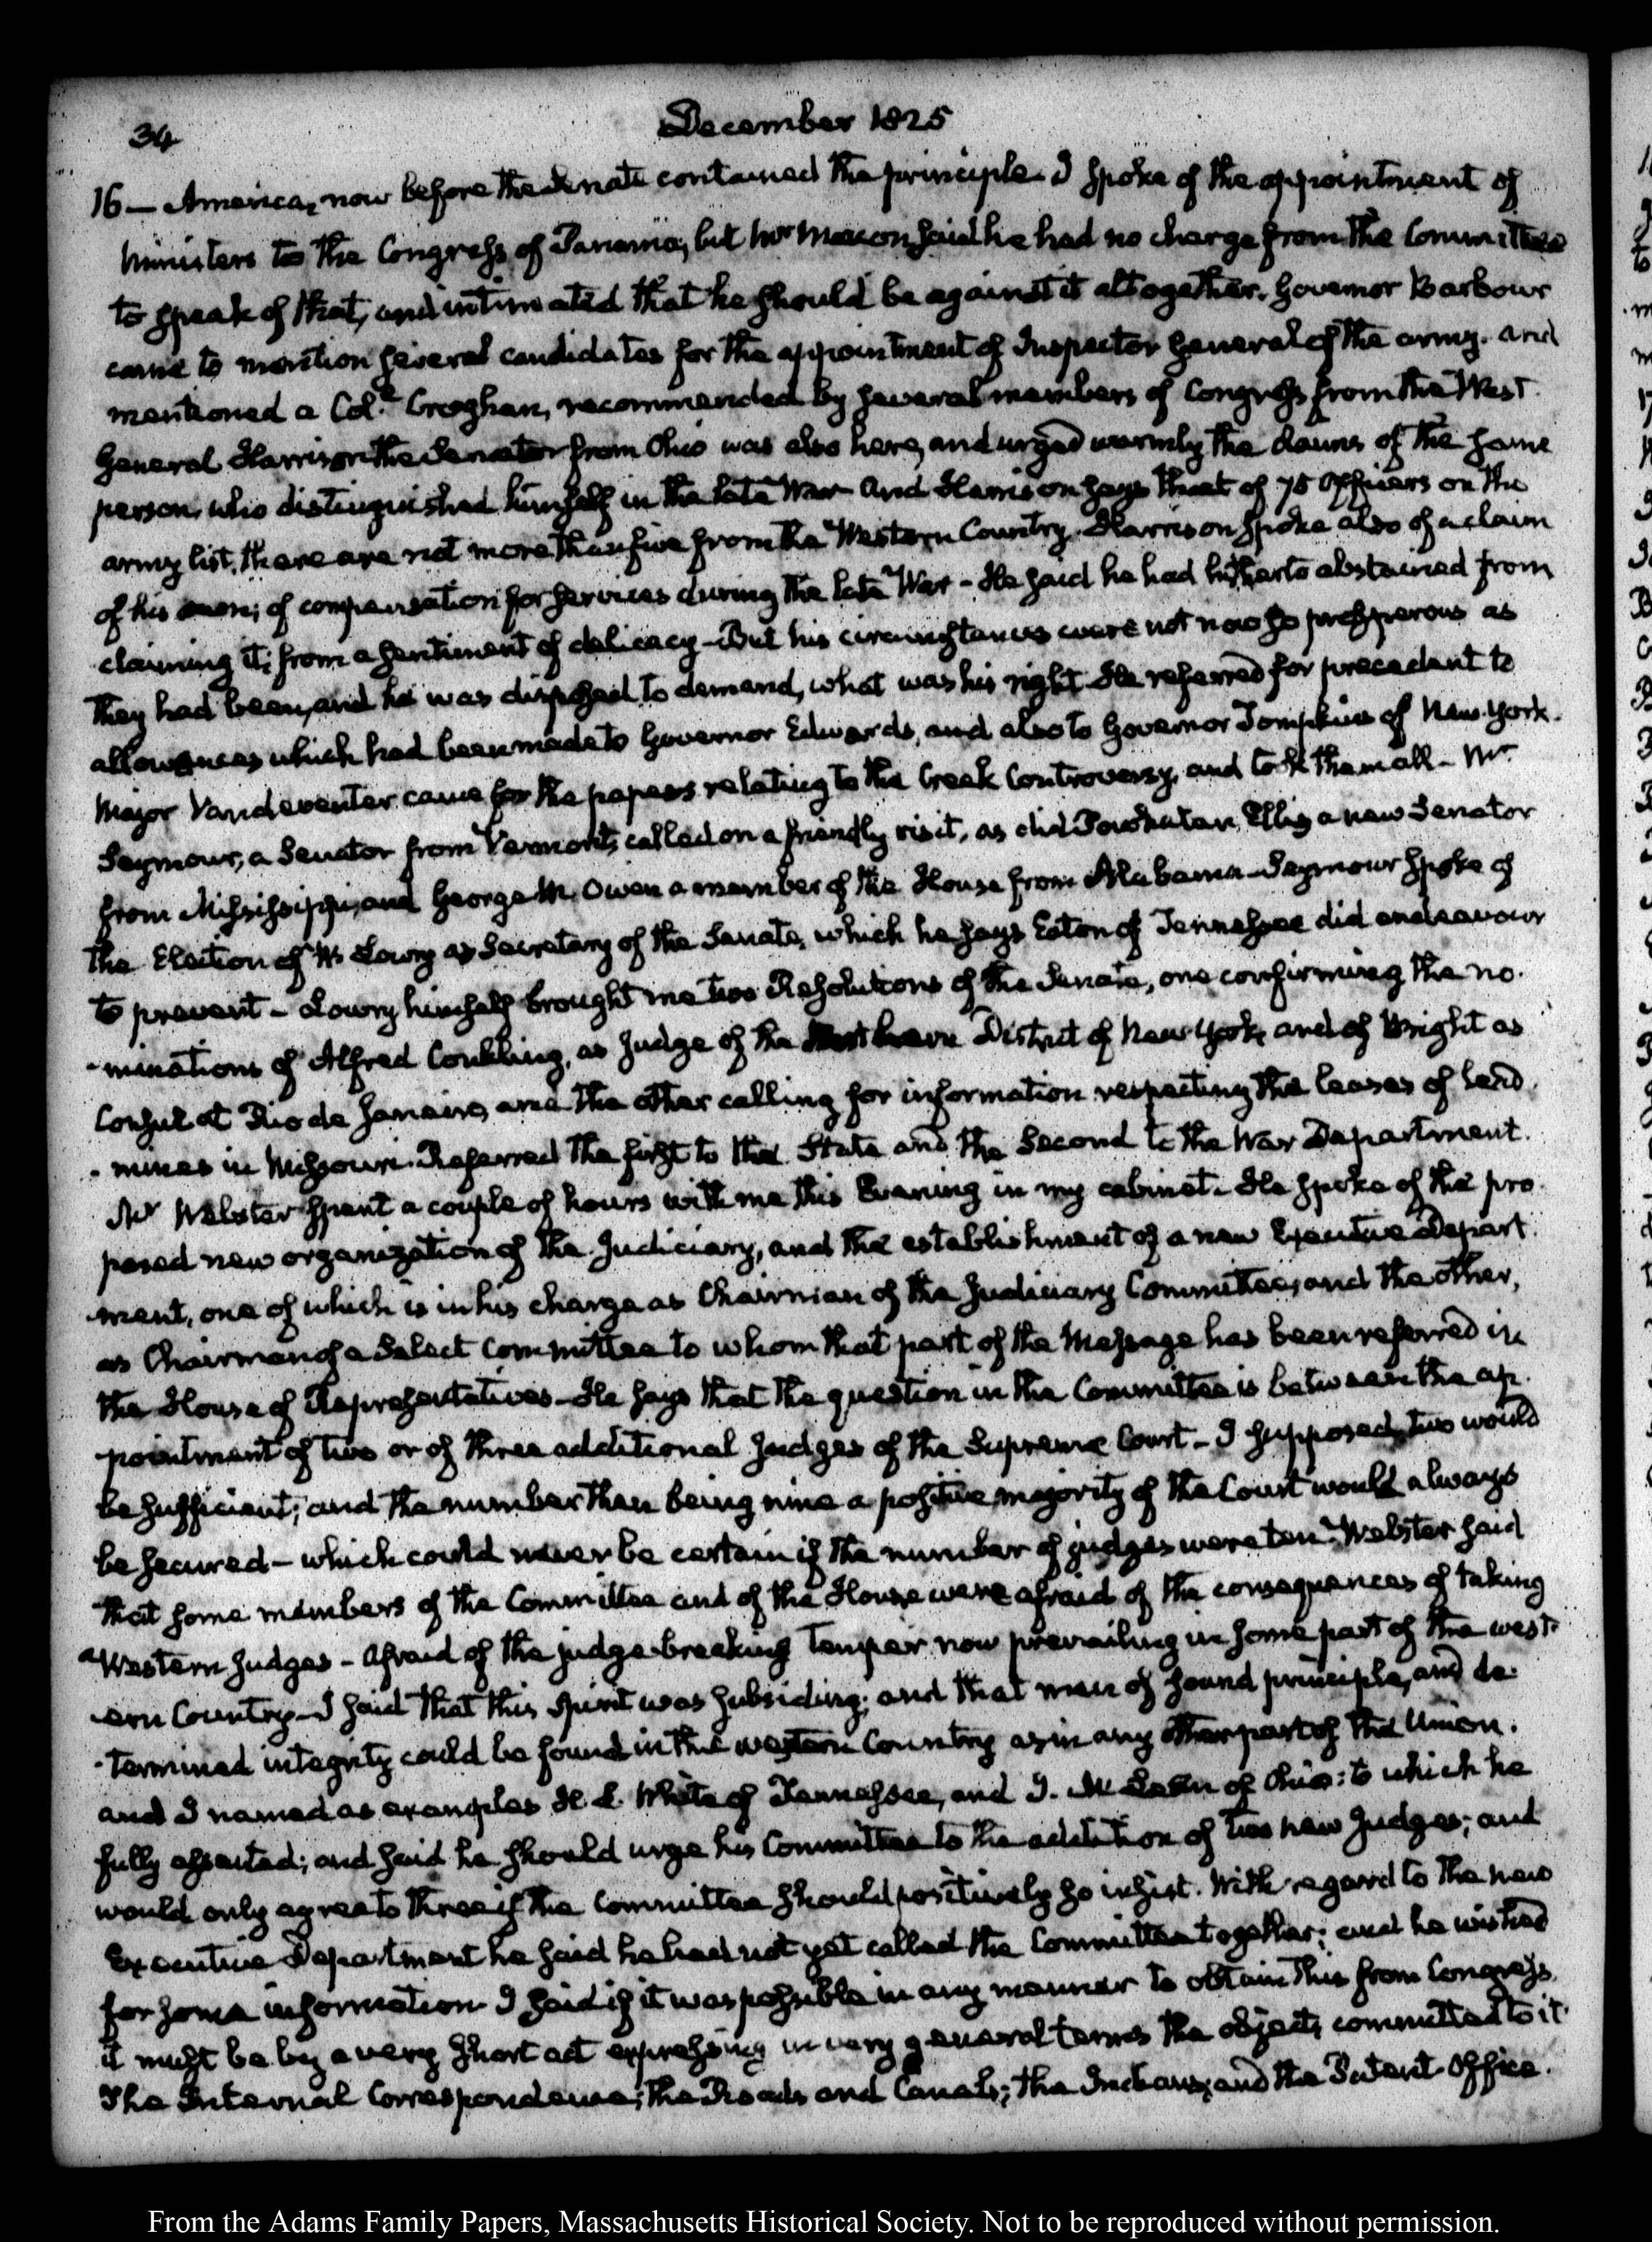 34
December 1825
16— America, now before the Senate contained the principle. I spoke of the appointment of
Ministers to the Congress of Panama, but Mr Macon said he had no charge from the Committee
to speak of that, and intimated that he should be against it altogether. Governor Barbour
came to mention several candidates for the appointment of Inspector General of the army. and
mentioned a Coll. Croghan, recommended by several members of Congress from the West.
General Harrison the Senator from Ohio was also here, and urged warmly the claims of the same
person, who distinguished himself in the late War and Harrison says that of 75 officers on the
army list, there are not more than five from the Western Country. Harrison spoke also of a claim
of his own; of compensation for services during the late War - He said he had hitherto abstained from
claiming it; from a sentiment of delicacy - But his circumstances were not now so prosperous as
they had been, and he was disposed to demand, what was his right. He referred for precedent to
allowances which had been made to Governor Edwards, and also to Governor Tompkins of New York.
Major Vandeventer came for the papers relating to the Creek Controversy, and took them all - Mr
Seymour, a Senator from Vermont, called on a friendly visit, as did Powhatan Ellis a new Senator
from Mississippi, and George W. Owen a member of the House from Alabama - Seymour spoke of
the Election of W. Lowry as Secretary of the Senate, which he says Eaton of Tennessee did endeavour
to prevent - Lowry himself brought me two Resolutions of the Senate, one confirming the no-
-minations of Alfred Conkling, as Judge of the Northern District of New York, and of Wright as
Consul at Rio de Janeiro, and the other calling for information respecting the leases of lead
-mines in Missouri. Referred the first to the State and the Second to the War Department.
Mr Webster spent a couple of hours with me this Evening in my cabinet. He spoke of the pro-
posed new organization of the Judiciary, and the establishment of a new Executive Depart-
-ment, one of which is in his charge as Chairman of the Judiciary Committee, and the other,
as Chairman of a Select Committee to whom that part of the Message has been referred in
the House of Representatives - He says that the question in the Committee is between the ap-
-pointment of two or of three additional Judges of the Supreme Court - I supposed two would
be sufficient; and the number then being nine a positive majority of the Court would always
be secured - which could never be certain if the number of judges were ten. Webster said
that some members of the Committee and of the House were afraid of the consequences of taking
Western Judges - Afraid of the judge-breaking temper now prevailing in some part of the west-
-ern Country - I said that this spirit was subsiding; and that men of sound principle, and de-
-termined integrity could be found in the western Country as in any other part of the Union.
and I named as examples H. L. White of Tennessee, and J. McLean of Ohio: to which he
fully assented; and said he should urge his Committee to the addition of two new Judges; and
would only agree to three if the Committee should positively so insist. With regard to the new
Executive Department he said he had not yet called the Committee together; and he wished
for some information. I said if it was possible in any manner to obtain this from Congress,
it must be by a very short act expressing in very general terms the objects committed to it
The Internal Correspondence; the Roads and Canals; the Indians; and the Patent Office.
From the Adams Family Papers, Massachusetts Historical Society. Not to be reproduced without permission.